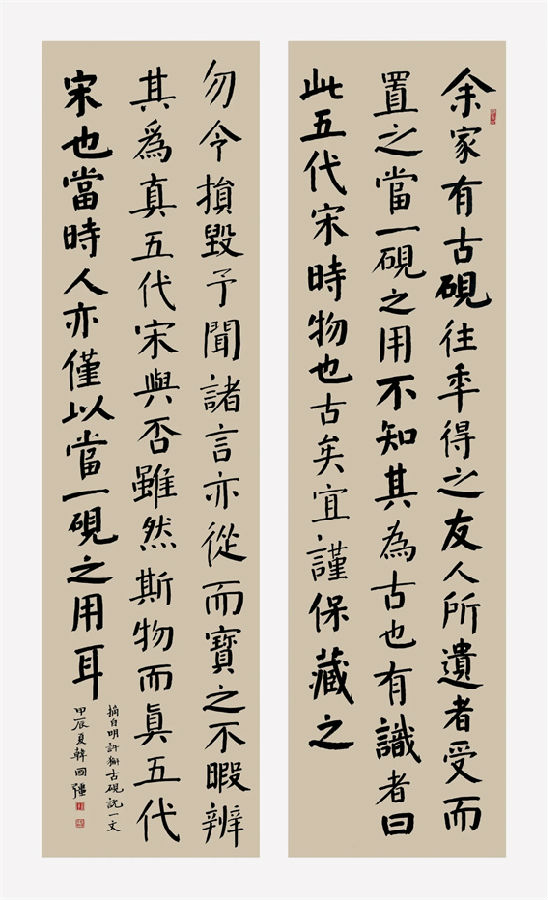 余家有古硯往秊得之友人所遺者受而
置之當一硯之用不知其為古也有識者曰
此五代宋時物也古矣宜謹保藏之
勿令損毀予聞諸言亦從而寶之不暇辨
其爲真五代宋與否雖然斯物而眞五代
宋也當時人亦僅以當一硯之用耳
摘自明許獬古硯說一文
甲辰夏韓國彊